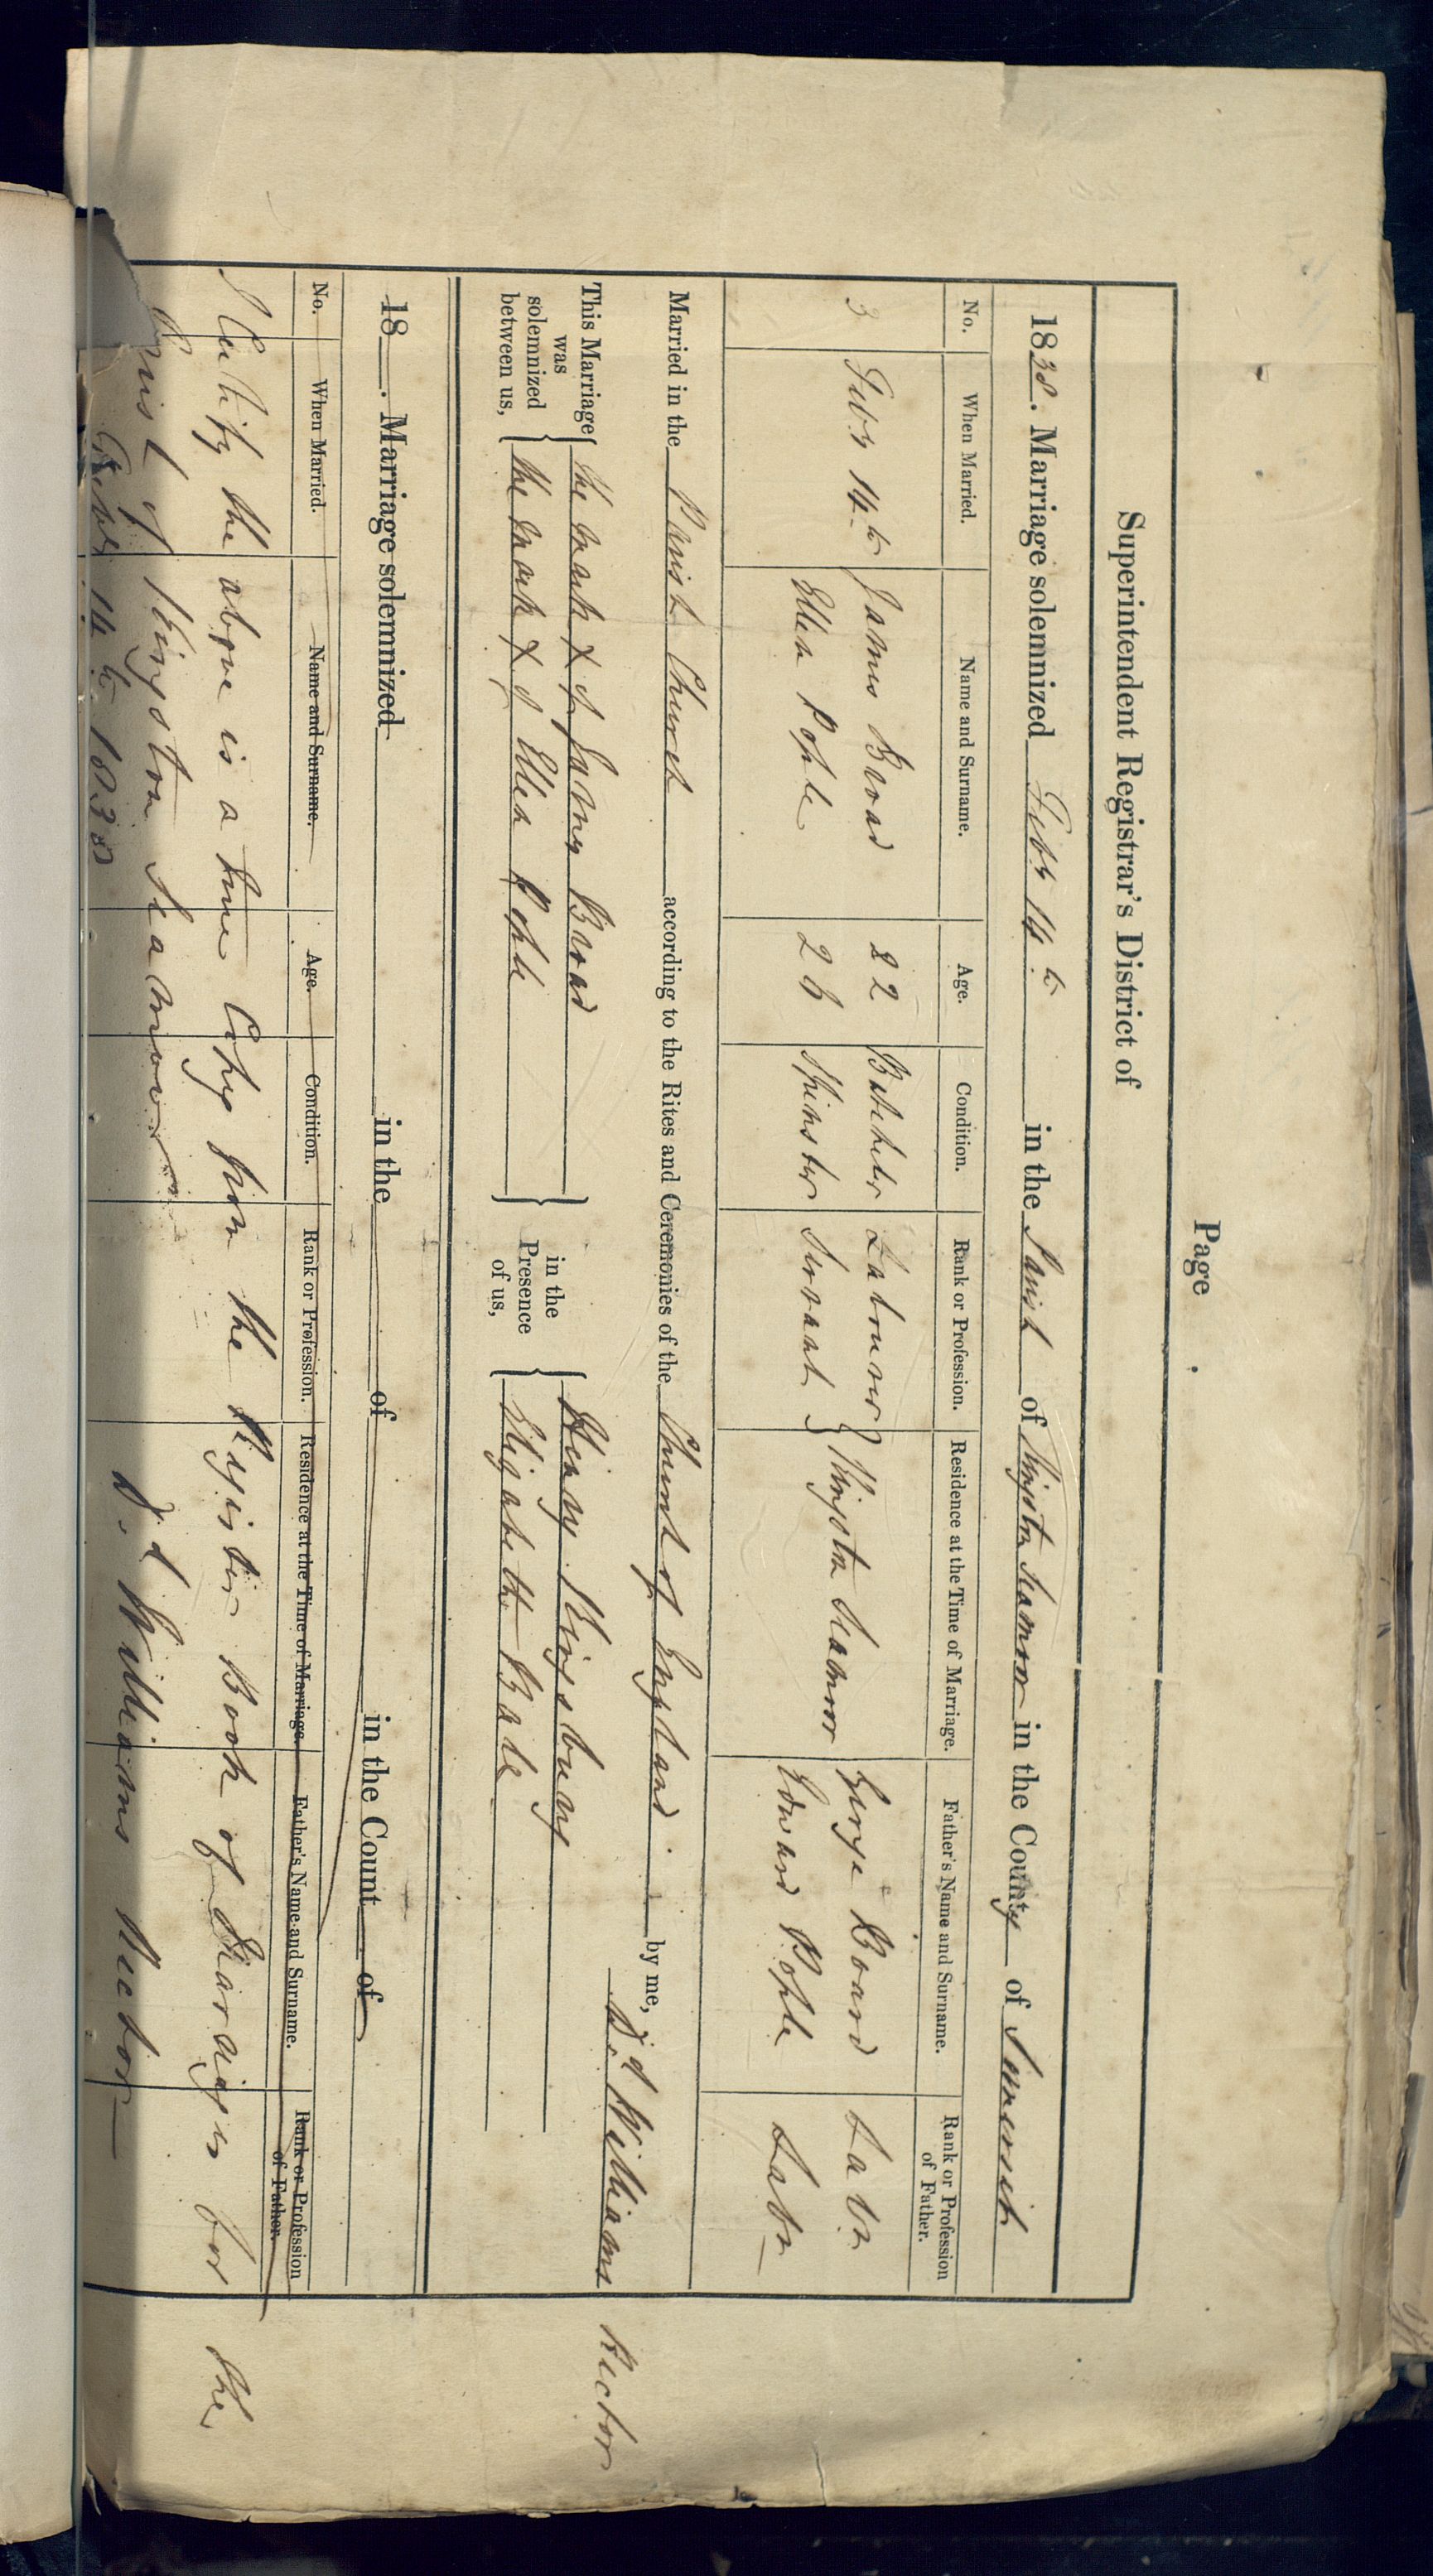 Page .
Superintendent Registrar's District of
1838. Marriage solemnized Feby 14th in the Parish of Kingston Seamoor in the County of Somerset
No. When Married. Name and Surname. Age. Condition. Rank or Profession. Residence at the Time of Marriage. Father's Name and Surname. Rank or Profession of Father.
3 Feby 14th James Broad 22 Batchelor Labourer Kingston Seamoor George Board Labr
Ellen Pople 26 Spinster Servant Edward Pople Labr
Married in the Parish Church according to the Rites and Ceremonies of the Church of England by me,
D. d Williams Rector
This Marriage was solemnized between us, the mark X of James Broad in the Presence of us, Henry Kingsbury
the mark X of Ellen Pople Elizabeth Bale
18 . Marriage solemnized in the of in the Count of
No. When Married. Name and Surname. Age. Condition. Rank or Profession. Residence at the Time of Marriage. Father's Name and Surname. Rank or Profession of Father.
I Certify the above is a true Copy from the Register Book of Marriages for the
Parish of Kingston Seamoor
D. d Williams Rector
Feby 14th 1838